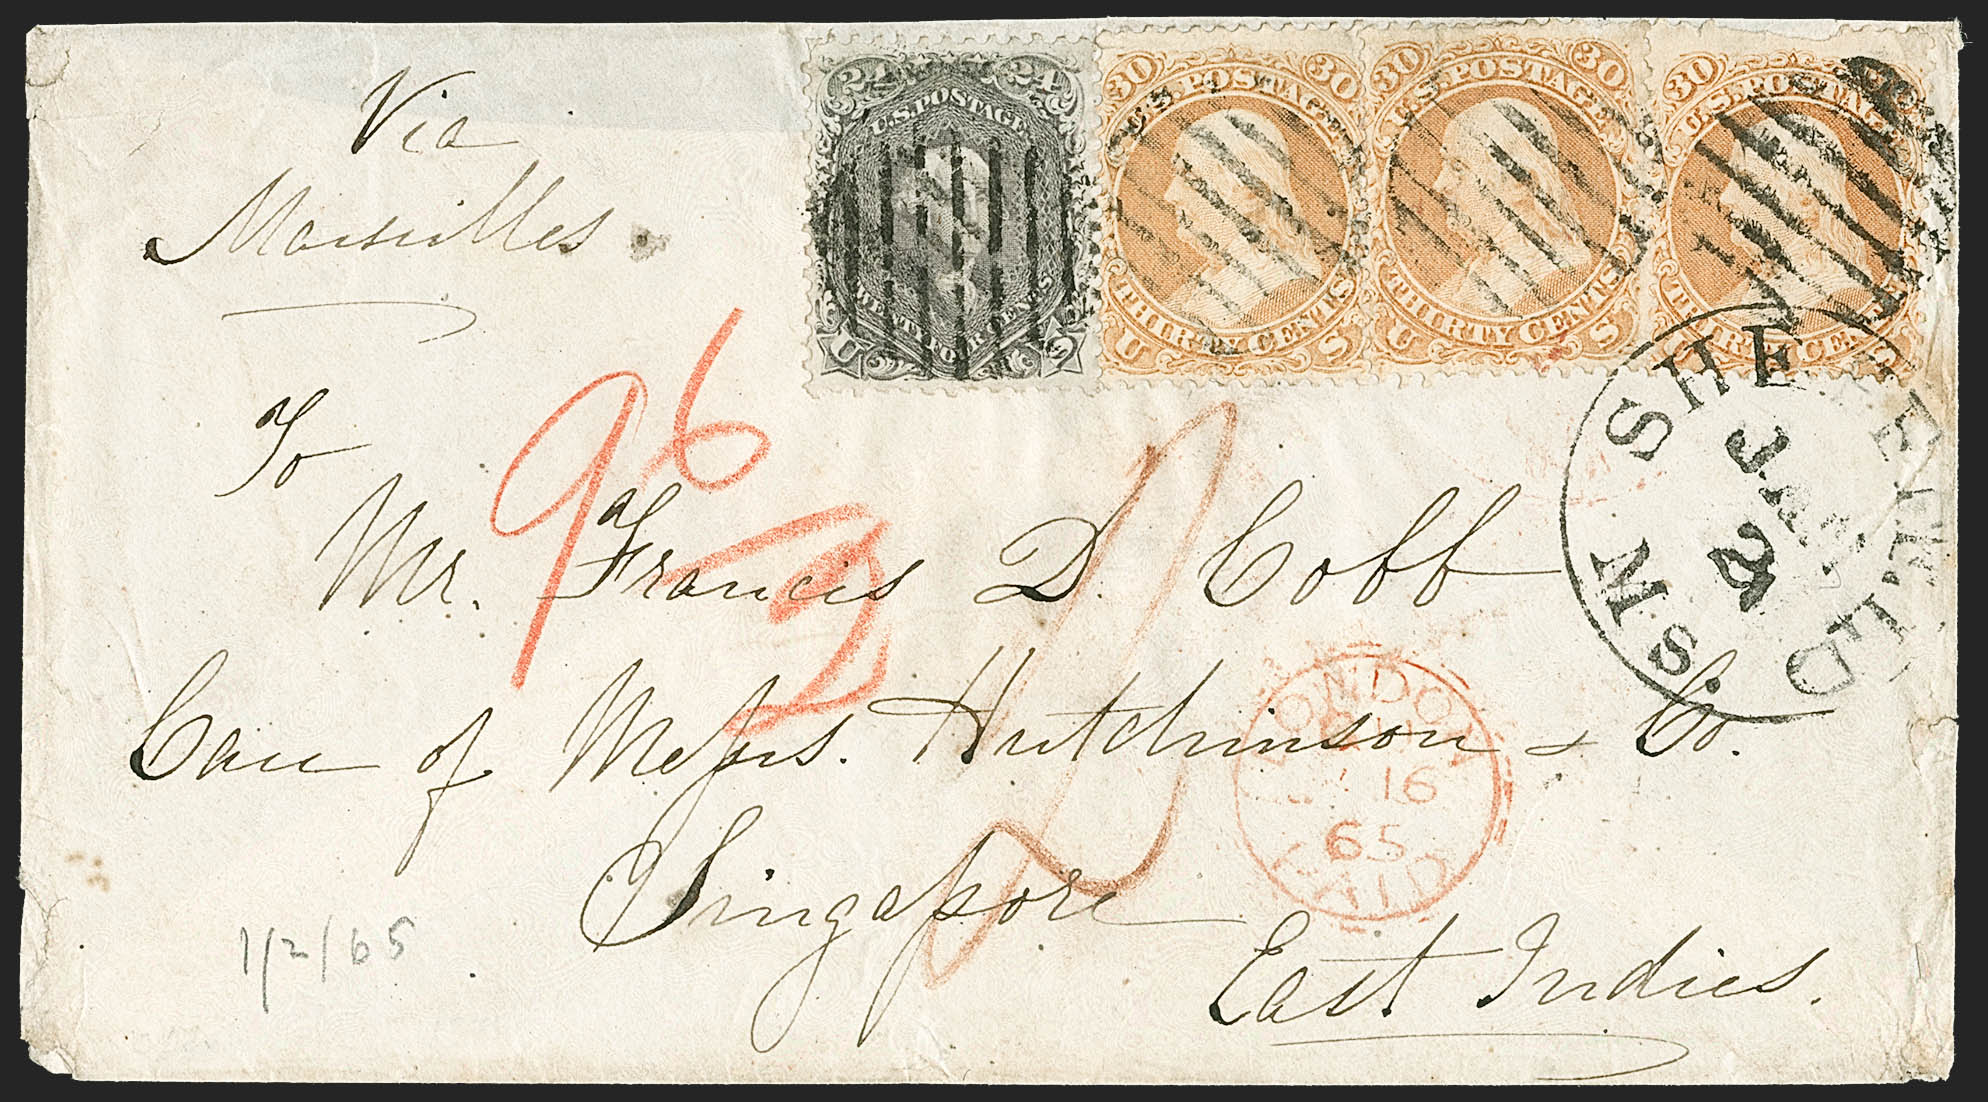 Via
Marseilles.
24 24
U.S. POSTAGE
TWENTY FOUR CENTS
U S
30 30
U.S. POSTAGE
THIRTY CENTS
U S
30 30
U.S. POSTAGE
THIRTY CENTS
U S
30
U.S. POSTAGE
THIRTY CENTS
SHEFFIELD
JAN
2
Ms
96
2
To
Mr. Francis D. Cobb
Care of Messrs. Hutchinson & Co.
Singapore
East Indies.
LONDON
16
65
PAID
1/2/65